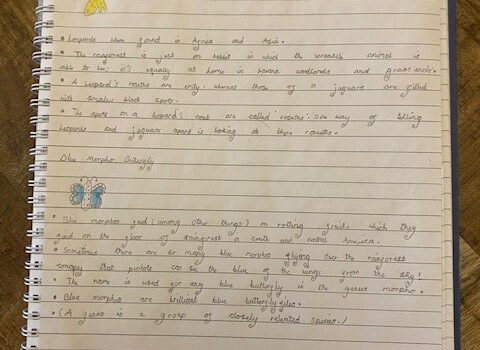 • Leopards when found in Africa and Asia.
• The rainforest is just on habit in which the versatile animal is
able to live; it's equally at home in savana, woodlands and grasslands.
• A leopard's rosettes are emty whereas those of a jaguars are filled
with smaller black spots.
• The spots on a leopard's coat are called rosettes: one way of telling
Leopards and jaguars apart is looking at there rosettes.
Blue Morpho Butterfly
• Blue morphos feed (among other things) on rotting fruit, which they
find on the floor of rainforest in south and central America.
• Sometimes there are so many blue morphos flying over the rainforest
canopy that pivlots can see the blue of the wings from the sky!
• The name is used for any blue butterfly in the genus morpho.
• Blue morphos are brilliant blue butterflyflies.
• (A genus is a group of closely related species.)